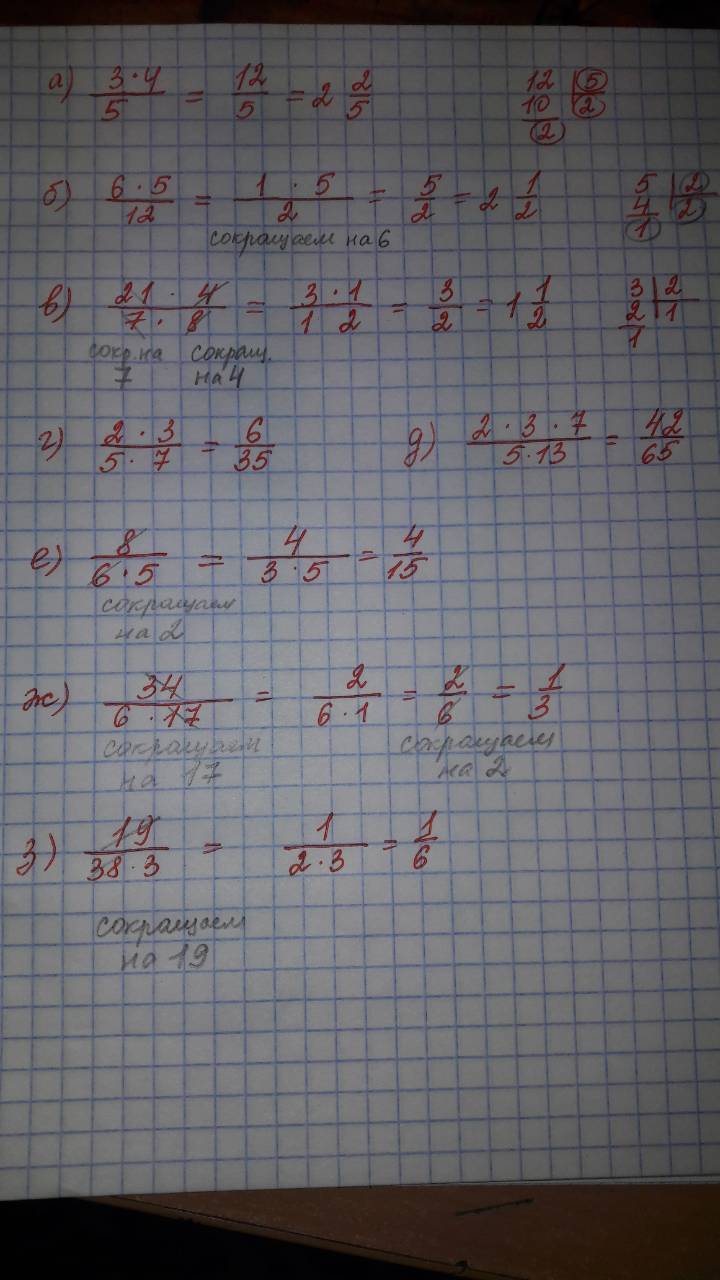 а) 3·4/5 = 12/5 = 2 2/5   12 | 5
10   2
2
б) 6·5/12 = 1·5/2 = 5/2 = 2 1/2   5 | 2
4   2
1
сокращаем на 6
в) 21·4/7·8 = 3·1/1 2 = 3/2 = 1 1/2   3 | 2
2   1
1
сокр. на 7   сокращ. на 4
г) 2·3/5·7 = 6/35   д) 2·3·7/5·13 = 42/65
е) 8/6·5 = 4/3·5 = 4/15
сокращаем
на 2
ж) 34/6·17 = 2/6·1 = 2/6 = 1/3
сокращаем   сокращаем
на 17   на 2
з) 19/38·3 = 1/2·3 = 1/6
сокращаем
на 19